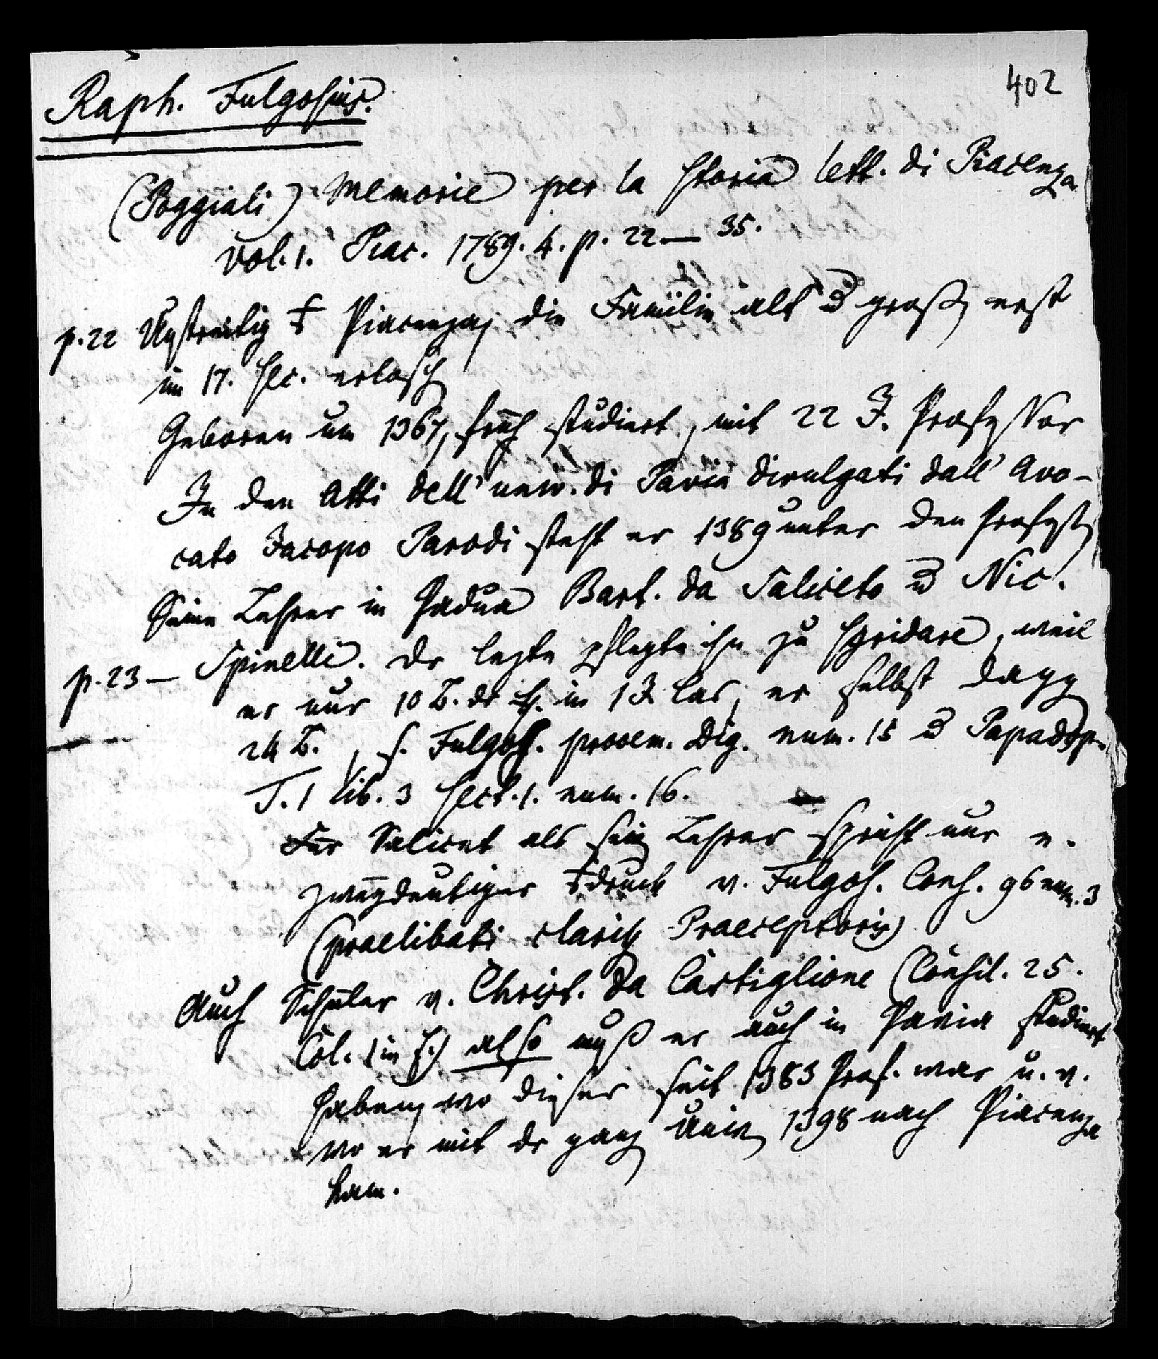 402
Raph. Fulgosius.
(Poggiali) Memorie per la storia lett. di Piacenza
vol. 1. Piac. 1789. 4. p. 22 — 35.
p. 22 Unstreitig Piacenza, die Familie alt u groß, erst
im 17. Sec. erlosch
Geboren um 1367, früh studiert, mit 22 J. Professor
In den Atti dell' univ. di Pavia divulgati dall' Avo-
cato Jacopo Parodi steht er 1389 unter den Professoren
Seine Lehrer in Padua Bart. da Saliceto u Nic.
p. 23 — Spinelli. Dr lezte pflegte ihn zu sgridare, weil
er nur 10 B. dr in 1 J. las, er selbst dagg
24 B., s. Fulgos. prooem. Dig. num. 15 u Papadop.
T. 1 lib. 3 sect. 1. num. 16.
Für Salicet als sein Lehrer spricht nur e.
zweydeutiger druck v. Fulgos. Cons. 96 num. 3
(praelibati clariss Praeceptoris)
Auch Schüler v. Christ. da Castiglione (Consil. 25.
Col. 1 in f.) also muß er auch in Pavia studiert
haben, wo dieser seit 1383 Prof. war u. v.
wo er mit dr ganz Univ 1398 nach Piacenza
kam.